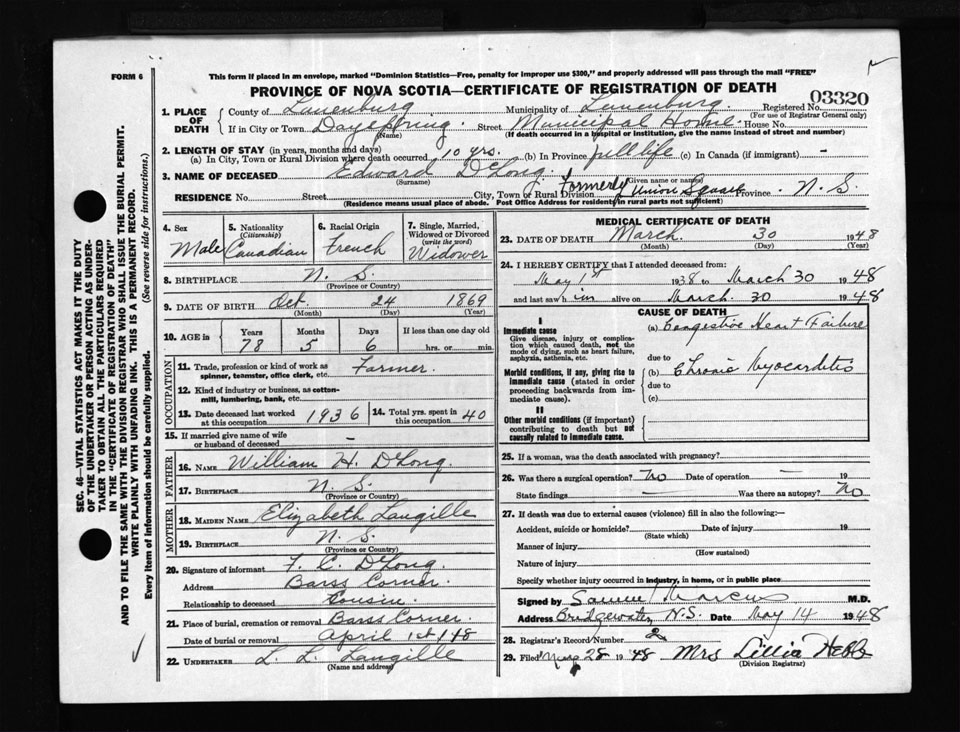 FORM 6
This form if placed in an envelope, marked "Dominion Statistics—Free, penalty for improper use $300," and properly addressed will pass through the mail "FREE"
PROVINCE OF NOVA SCOTIA—CERTIFICATE OF REGISTRATION OF DEATH
1. PLACE OF DEATH
County of Lunenburg Municipality of Lunenburg. Registered No. 03320
(For use of Registrar General only)
If in City or Town Dayspring. Street Municipal Home. House No.
(Name) (If death occurred in a hospital or institution, give the name instead of street and number)
2. LENGTH OF STAY (in years, months and days)
(a) In City, Town or Rural Division where death occurred 10 yrs. (b) In Province full life (c) In Canada (if immigrant) –
3. NAME OF DECEASED Edward DeLong.
(Surname) (Given name or names)
RESIDENCE No. Street City, Town or Rural Division Formerly Union Square Province N. S.
(Residence means usual place of abode. Post Office Address for residents in rural parts not sufficient)
4. Sex Male
5. Nationality (Citizenship) Canadian
6. Racial Origin French
7. Single, Married, Widowed or Divorced (write the word) Widower
8. BIRTHPLACE N. S.
(Province or Country)
9. DATE OF BIRTH Oct. 24 1869
(Month) (Day) (Year)
10. AGE in Years Months Days If less than one day old
78 5 6 hrs. or min.
OCCUPATION
11. Trade, profession or kind of work as spinner, teamster, office clerk, etc. Farmer.
12. Kind of industry or business, as cotton-mill, lumbering, bank, etc.
13. Date deceased last worked at this occupation 1936
14. Total yrs. spent in this occupation 40
15. If married give name of wife or husband of deceased –
FATHER
16. NAME William H. DeLong.
17. BIRTHPLACE N. S.
(Province or Country)
MOTHER
18. MAIDEN NAME Elizabeth Langille
19. BIRTHPLACE N. S.
(Province or Country)
20. Signature of informant F. C. DeLong.
Address Barss Corner.
Relationship to deceased Cousin.
21. Place of burial, cremation or removal Barss Corner.
Date of burial or removal April 1st/48
22. UNDERTAKER L. L. Langille
(Name and address)
MEDICAL CERTIFICATE OF DEATH
23. DATE OF DEATH March 30 1948
(Month) (Day) (Year)
24. I HEREBY CERTIFY that I attended deceased from:
May 1st 1938 to March 30 1948
and last saw him alive on March. 30 1948
CAUSE OF DEATH
I
Immediate cause
Give disease, injury or complication which caused death, not the mode of dying, such as heart failure, asphyxia, asthenia, etc.
(a) Congestive Heart Failure
due to
Morbid conditions, if any, giving rise to immediate cause (stated in order proceeding backwards from immediate cause).
(b) Chronic Myocarditis
due to
(c)
II
Other morbid conditions (if important) contributing to death but not causally related to immediate cause.
25. If a woman, was the death associated with pregnancy?
26. Was there a surgical operation? No Date of operation – 19
State findings – Was there an autopsy? No
27. If death was due to external causes (violence) fill in also the following:—
Accident, suicide or homicide? Date of injury 19
(State which)
Manner of injury
(How sustained)
Nature of injury
Specify whether injury occurred in industry, in home, or in public place
Signed by Samuel Marcus M.D.
Address Bridgewater, N.S. Date May 14 1948
28. Registrar's Record/Number 2
29. Filed 28 1948 Mrs Lillia Hebb
(Division Registrar)
SEC. 46—VITAL STATISTICS ACT MAKES IT THE DUTY
OF THE UNDERTAKER OR PERSON ACTING AS UNDER-
TAKER TO OBTAIN ALL THE PARTICULARS REQUIRED
IN THE "CERTIFICATE OF REGISTRATION OF DEATH"
AND TO FILE THE SAME WITH THE DIVISION REGISTRAR WHO SHALL ISSUE THE BURIAL PERMIT.
WRITE PLAINLY WITH UNFADING INK. THIS IS A PERMANENT RECORD.
Every item of information should be carefully supplied. (See reverse side for instructions.)